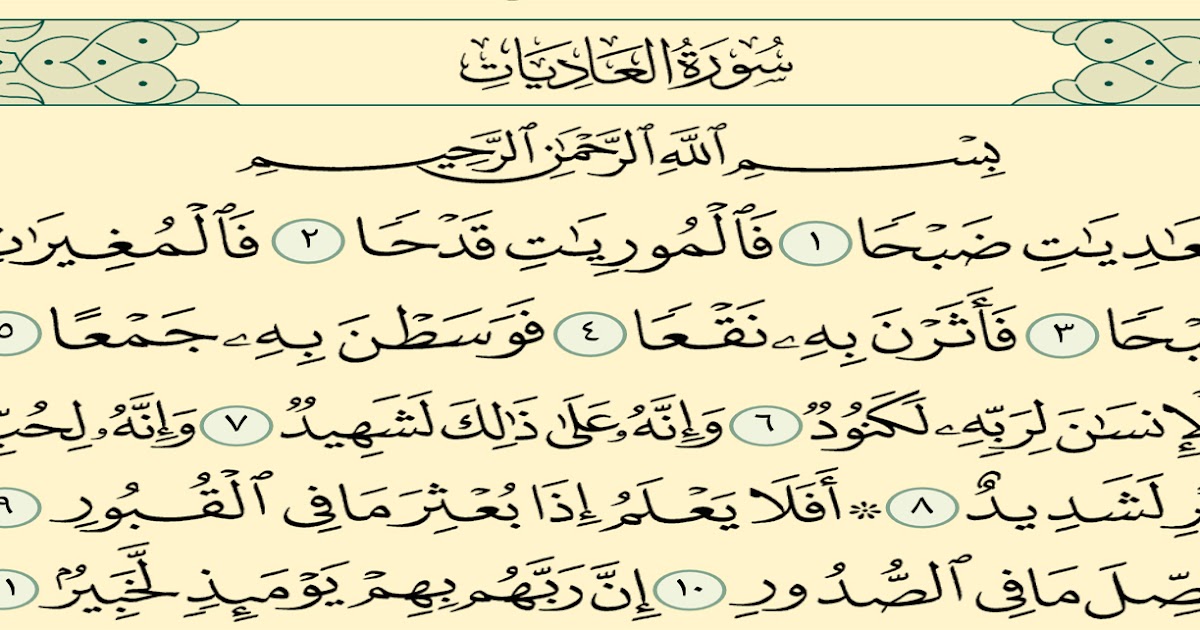 سُورَةُ العَادِيَاتِ
بِسْمِ ٱللَّهِ ٱلرَّحْمَٰنِ ٱلرَّحِيمِ
عَٰدِيَٰتِ ضَبْحًا ١ فَٱلْمُورِيَٰتِ قَدْحًا ٢ فَٱلْمُغِيرَٰتِ
بْحًا ٣ فَأَثَرْنَ بِهِۦ نَقْعًا ٤ فَوَسَطْنَ بِهِۦ جَمْعًا ٥
لْإِنسَٰنَ لِرَبِّهِۦ لَكَنُودٌ ٦ وَإِنَّهُۥ عَلَىٰ ذَٰلِكَ لَشَهِيدٌ ٧ وَإِنَّهُۥ لِحُبِّ
رِ لَشَدِيدٌ ٨ ۞ أَفَلَا يَعْلَمُ إِذَا بُعْثِرَ مَا فِي ٱلْقُبُورِ ٩
صِّلَ مَا فِي ٱلصُّدُورِ ١٠ إِنَّ رَبَّهُم بِهِمْ يَوْمَئِذٍ لَّخَبِيرٌۢ ١